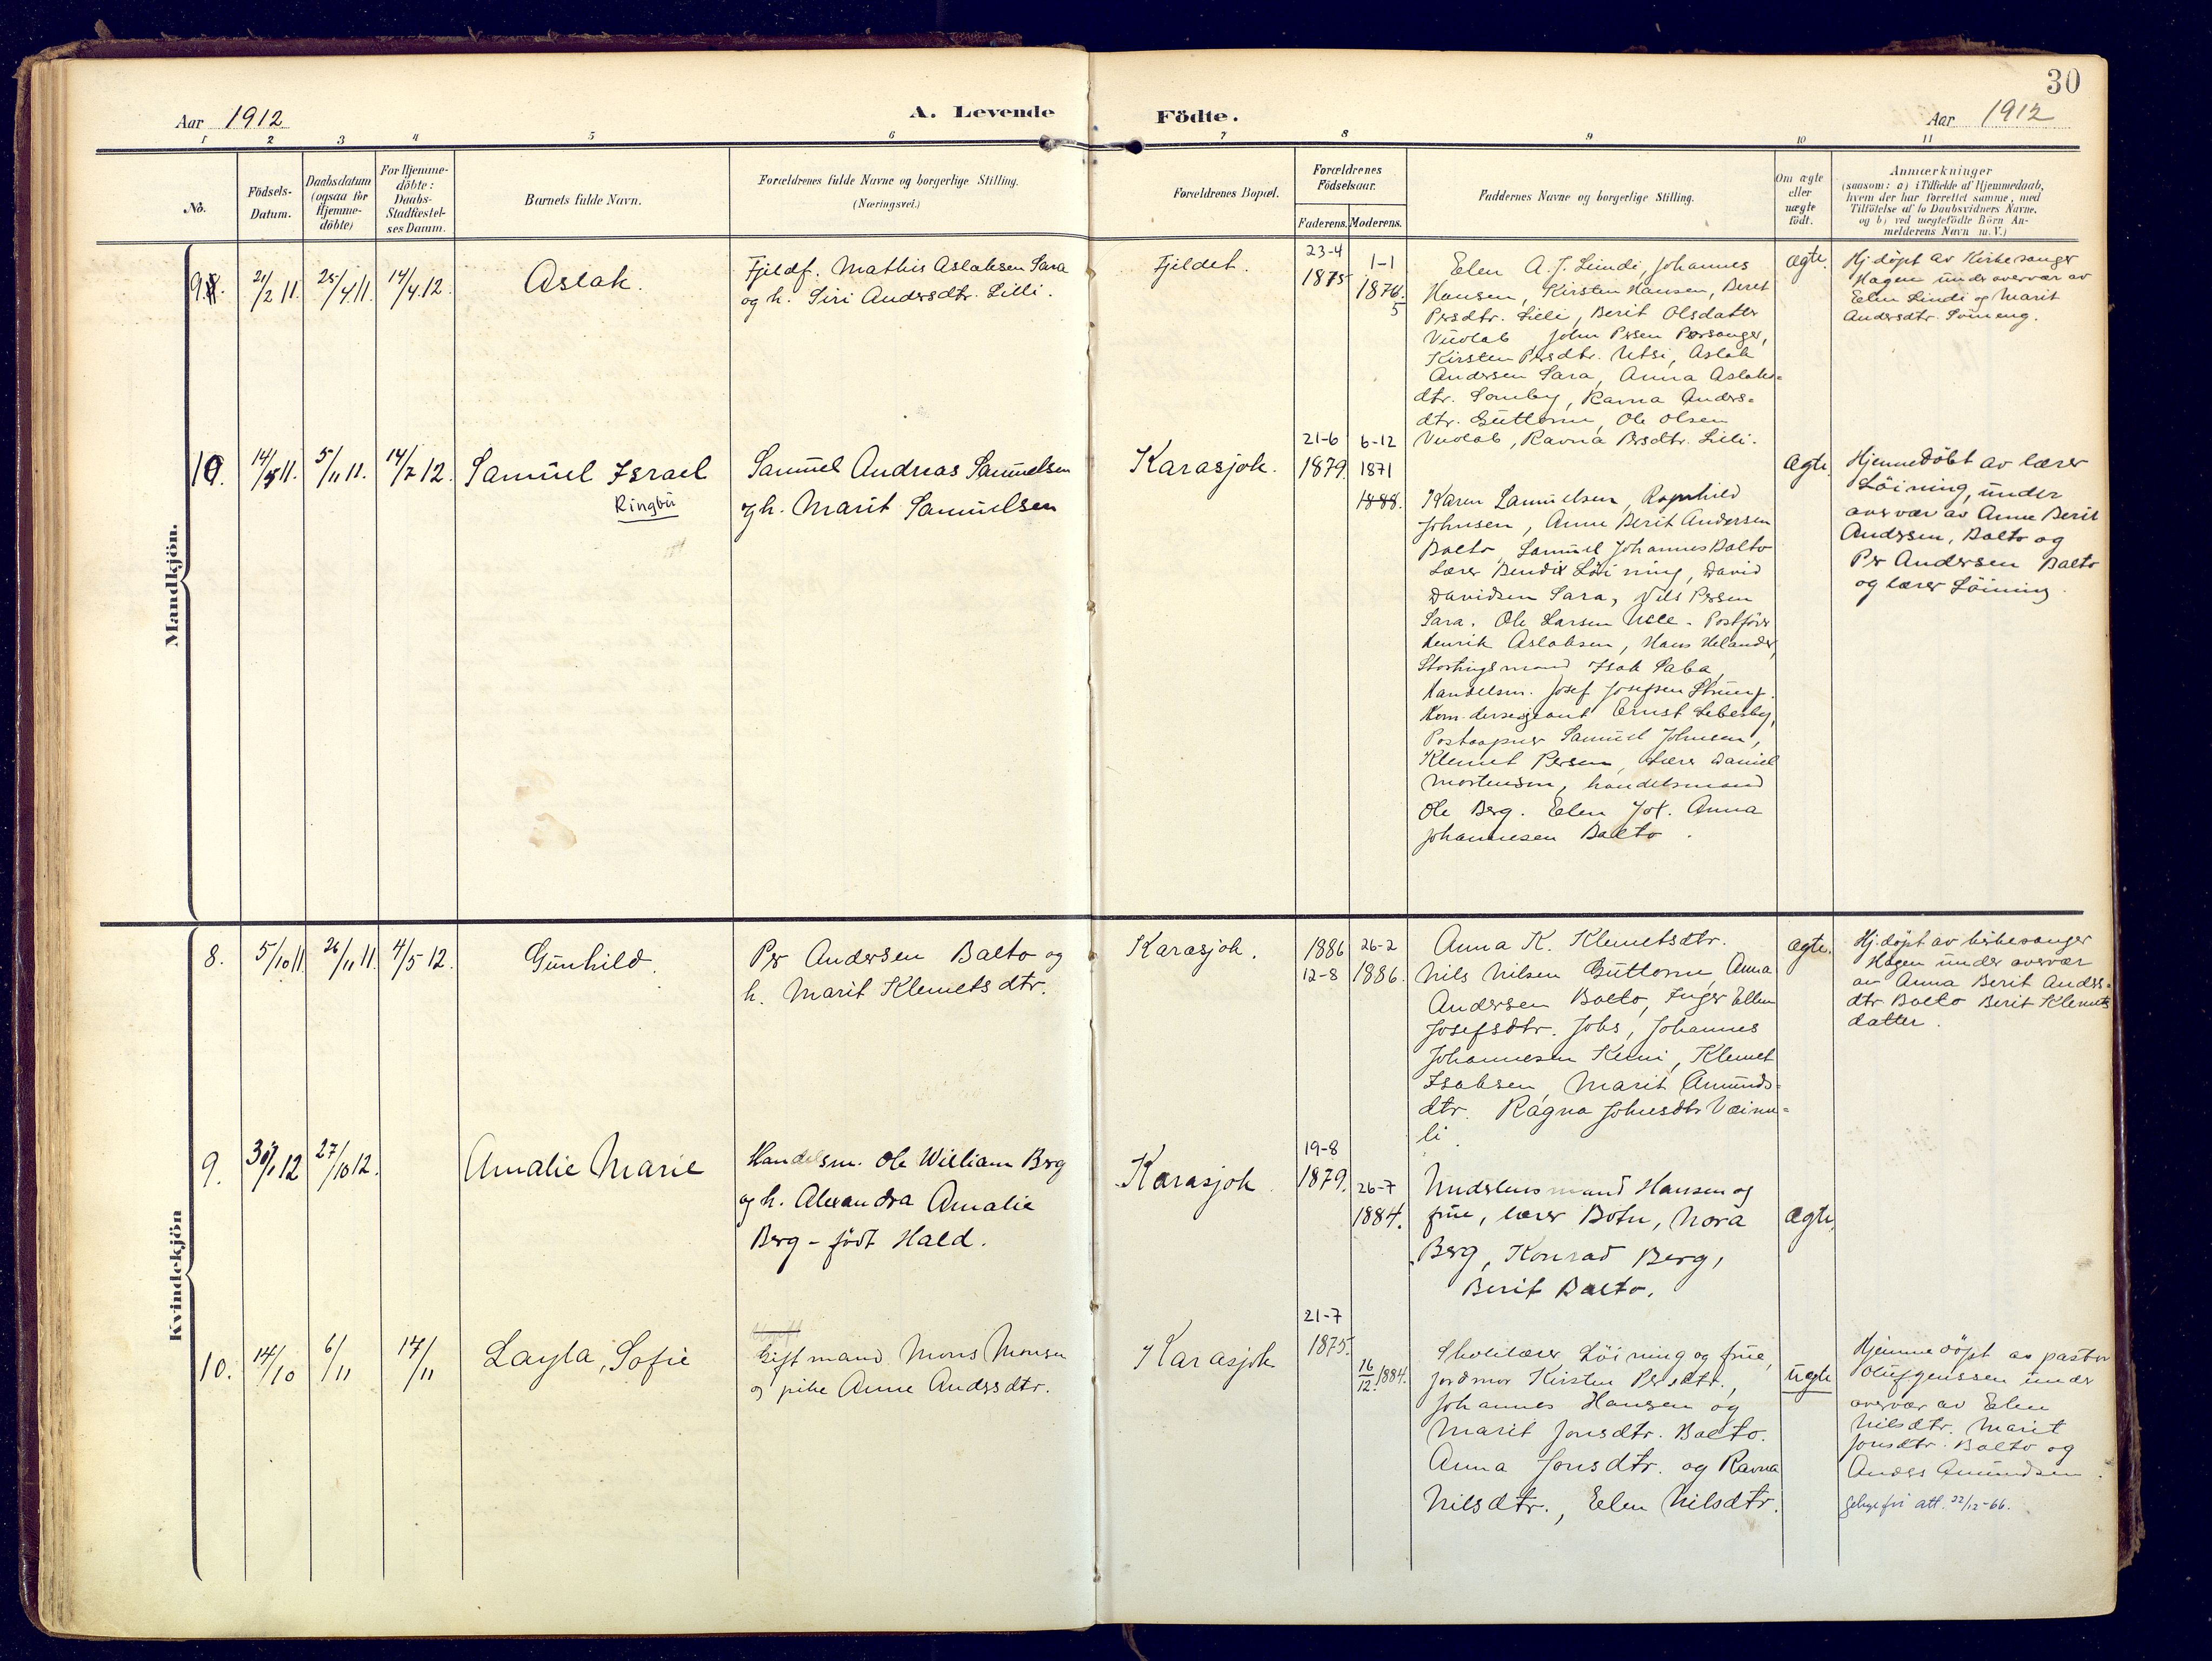 30
Aar 1912
A. Levende Födte.
Aar 1912
1 2 3 4 5 6 7 8 9 10 11
No.
Födsels-
Datum.
Daabsdatum
(ogsaa for
Hjemme-
döbte)
For Hjemme-
döbte:
Daabs-
Stadfæstel-
ses Datum.
Barnets fulde Navn.
Forældrenes fulde Navne og borgerlige Stilling.
(Næringsvei.)
Forældrenes Bopæl.
Forældrenes
Födselsaar.
Faderens. Moderens.
Faddernes Navne og borgerlige Stilling.
Om ægte
eller
uægte
födt.
Anmærkninger
(saasom: a) i Tilfælde af Hjemmedaab,
hvem der har forrettet samme, med
Tilföielse af to Daabsvidners Navne.
og b) ved uægtefödte Börn An-
melderens Navn m. V.)
Mandkjön.
9. 21/2 11. 25/4 11. 14/4 12.
Aslak.
Fjeldf. Mathis Aslaksen Sara
og h. Siri Andersdtr. Lilli.
Fjeldet.
23-4
1875
1-1
1876.
5
Elen A. J. Lindi, Johannes
Hansen, Kirsten Hansen, Beret
Persdtr. Lilli, Berit Olsdatter
Vuolab John Persen Porsanger,
Kirsten Persdtr. Utsi, Aslak
Andersen Sara, Anna Aslaks=
dtr. Somby, Ravna Anders=
dtr. Guttorm, Ole Olsen
Vuolab, Ravna Persdtr. Lilli.
ægte.
Hj. døpt av Kirkesanger
Hagen under overvær av
Elen Lindi og Marit
Andersdtr.
10. 14/5 11. 5/11 11. 14/7 12.
Samuel Israel
Ringbu
Samuel Andreas Samuelsen
og h. Marit Samuelsen
Karasjok.
21-6
1879.
6-12
1871
1888.
Karen Samuelsen, Ragnhild
Johnsen, Anne Berit Andersen
Balto, Samuel Johannes Balto
Lærer Bendix Löining, David
Davidsen Sara, Nils Persen
Sara. Ole Larsen Postförer
Henrik Aslaksen, Hans Helander,
Stortingsmand Isak Saba,
Handelsm. Josef Josefsen
Ernst Lebesby,
Postaapner Samuel Johnsen,
Klemet Persen, Lærer Daniel
Mortensen, handelsmand
Ole Berg. Elen Anna
Johannesen Balto.
ægte.
Hjemmedöbt av lærer
Löining, under
overvær av Anne Berit
Andersen, Balto og
Per Andersen Balto
og lærer Löining.
Kvindekjön
8. 5/10 11 26/11 11. 4/5 12.
Gunhild.
Per Andersen Balto og
h. Marit Klemetsdtr.
Karasjok.
1886
12-8
26-2
1886.
Anna K. Klemetsdtr.
Nils Nilsen Guttorm, Anna
Andersen Balto, Inger Ellen
Josefsdtr. Johs, Johannes
Johannesen Kemi, Klemet
Isaksen, Marit Amunds=
dtr. Ragna Johnsdtr Vaino=
li.
ægte.
Hj. döpt av kirkesanger
Hagen under overvær
av Anna Berit Anders=
dtr Balto Berit Klemets
datter.
9. 30/ 12 27/10 12.
Amalie Marie
Handelsm. Ole William Berg
og h. Alexandra Amalie
Berg - födt Hald.
Karasjok.
19-8
1879.
26-7
1884.
Underlensmand Hansen og
frue, lærer Botn, Nora
Berg, Konrad Berg,
Berit Balto.
ægte.
10. 14/10 6/11 17/11
Layla, Sofie
Gift mand Mons Monsen
og pike Anne Andersdtr.
Karasjok
21-7
1875.
16/12. 1884.
Skolelærer Löining og frue,
jordmor Kirsten Persdtr.,
Johannes Hansen og
Marit Jonsdtr. Balto.
Anna Jonsdtr. og Ravna
Nilsdtr., Elen Nilsdtr.
uegte
Hjemmedöpt av pastor
under
overvær av Elen
Nilsdtr. Marit
Jonsdtr. Balto og
Anders Amundsen.
att. 22/12-66.